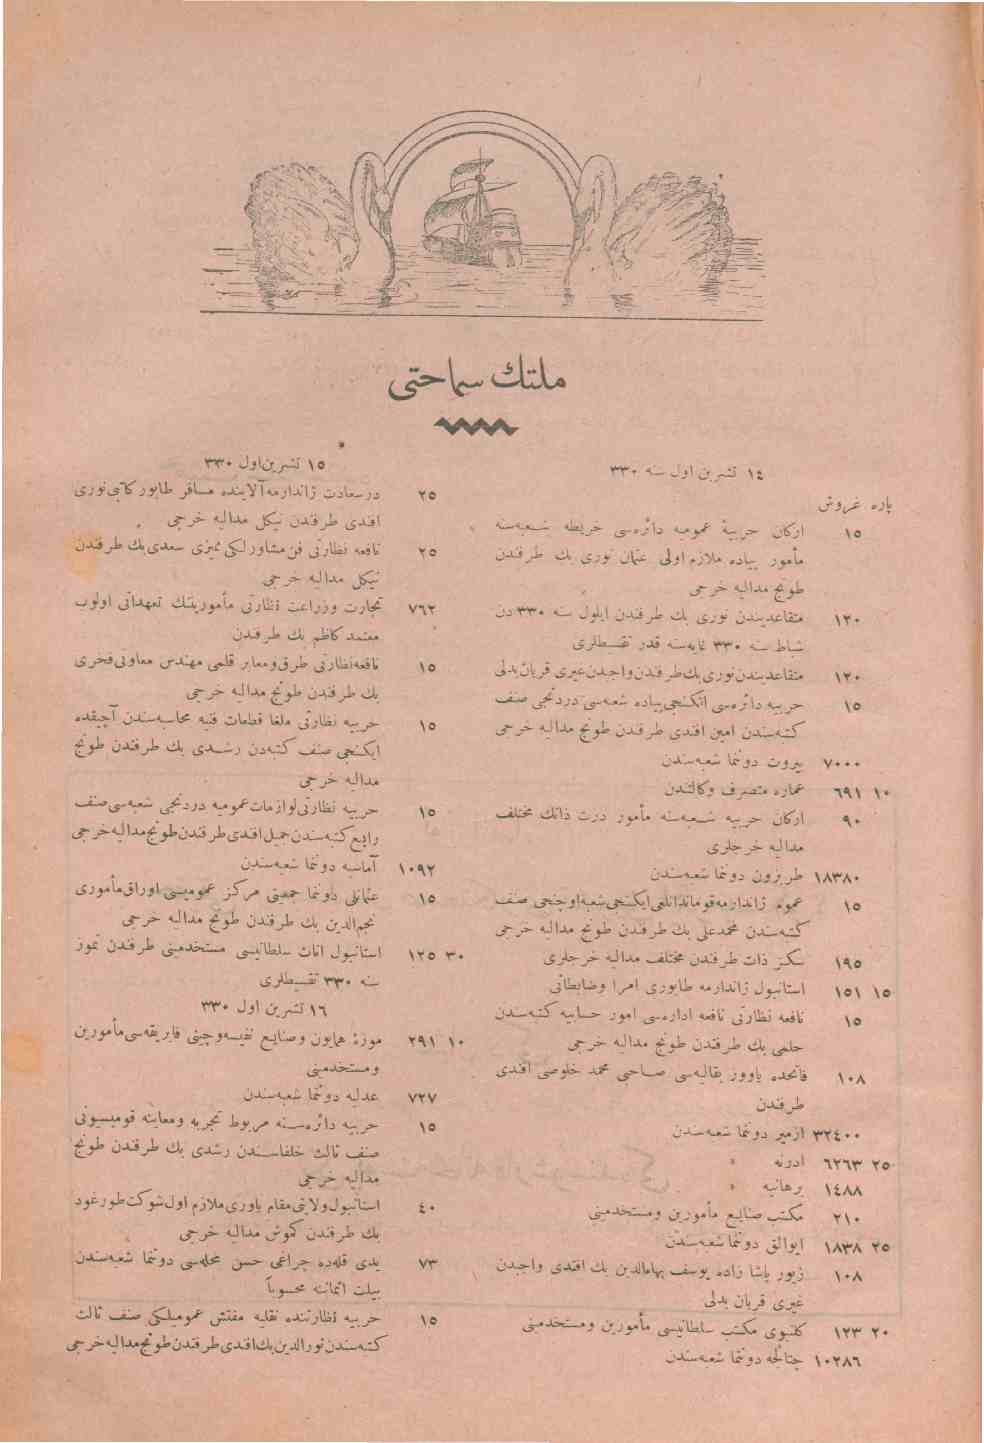 ملتك سماحتی
١٤ تشرین اول سنه ٣٣٠
پاره غروش
١٥ ارکان حربیهٔ عمومیه دائره‌سی خریطه شعبه‌سنه
مأمور پیاده ملازم اولی عثمان نوری بك طرفندن
طونج مدالیه خرجی
١٢٠ متقاعدیندن نوری بك طرفندن ایلول سنه ٣٣٠ دن
شباط سنه ٣٣٠ غایه‌سنه قدر تقسیطلری
١٢٠ متقاعدیندن نوری بك طرفندن واجبدن غیری قربان بدلی
١٥ حربیه دائره‌سی ایکنجی پیاده شعبه‌سی دردنجی صنف
کتبه‌سندن امین افندی طرفندن طونج مدالیه خرجی
٧٠٠٠ بیروت دوننما شعبه‌سندن
١٠ ٦٩١ عماره متصرف وکالتندن
٩٠ ارکان حربیه شعبه‌سنه مأمور درت ذاتك مختلف
مدالیه خرجلری
١٨٣٨٠ طربزون دوننما شعبه‌سندن
١٥ عموم ژاندارمه قوماندانلغی ایکنجی شعبه اوچنجی صنف
کتبه‌سندن محمدعلی بك طرفندن طونج مدالیه خرجی
١٩٥ سکز ذات طرفندن مختلف مدالیه خرجلری
١٥ ١٥١ استانبول ژاندارمه طابوری امرا وضابطانی
١٥ نافعه نظارتی نافعه اداره‌سی امور حسابیه کتبه‌سندن
حلمی بك طرفندن طونج مدالیه خرجی
١٠٨ فاتحده یاووز بقالیه‌سی صاحبی محمد خلوصی افندی
طرفندن
٣٢٤٠٠ ازمیر دوننما شعبه‌سندن
٢٥ ٦٢٦٣ ادرنه »
١٤٨٨ برهانیه »
٢١٠ مکتب صنایع مأمورین ومستخدمینی
٢٥ ١٨٣٨ ایوالق دوننما شعبه‌سندن
١٠٨ زیور پاشا زاده یوسف بهاءالدین بك افندی واجبدن
غیری قربان بدلی
٢٠ ١٢٣ کلنبوی مکتب سلطانیسی مأمورین ومستخدمینی
١٠٢٨٦ چتالجه دوننما شعبه‌سندن
*
١٥ تشرین اول ٣٣٠
٢٥ درسعادت ژاندارمه آلاینده مسافر طابور کاتبی نوری
افندی طرفندن نیکل مدالیه خرجی
٢٥ نافعه نظارتی فن مشاورلکی ممیزی سعدی بك طرفندن
نیکل مدالیه خرجی
٧٦٢ تجارت وزراعت نظارتی مأموریننك تعهداتی اولوب
معتمد کاظم بك طرفندن
١٥ نافعه نظارتی طرق ومعابر قلمی مهندس معاونی فخری
بك طرفندن طونج مدالیه خرجی
١٥ حربیه نظارتی ملغا قطعات فنیه محاسبه‌سندن آچیقده
ایکنجی صنف کتبه‌دن رشدی بك طرفندن طونج
مدالیه خرجی
١٥ حربیه نظارتی لوازمات عمومیه دردنجی شعبه‌سی صنف
رابع کتبه‌سندن جمیل افندی طرفندن طونج مدالیه خرجی
١٠٩٢ آماسیه دوننما شعبه‌سندن
١٥ عثمانلی دوننما جمعیتی مرکز عمومیسی اوراق مأموری
نجم‌الدین بك طرفندن طونج مدالیه خرجی
٣٠ ١٢٥ استانبول اناث سلطانیسی مستخدمینی طرفندن تموز
سنه ٣٣٠ تقسیطلری
١٦ تشرین اول ٣٣٠
١٠ ٢٩١ موزهٔ همایون وصنایع نفیسه وچینی فابریقه‌سی مأمورین
ومستخدمینی
٧٢٧ عدلیه دوننما شعبه‌سندن
١٥ حربیه دائره‌سنه مربوط تجربه ومعاینه قومیسیونی
صنف ثالث خلفاسندن رشدی بك طرفندن طونج
مدالیه خرجی
٤٠ استانبول ولایتی مقام یاوری ملازم اول شوکت طورغود
بك طرفندن کموش مدالیه خرجی
٧٣ یدی قله‌ده چراغی حسن محله‌سی دوننما شعبه‌سندن
بیلت اثماننه محسوباً
١٥ حربیه نظارتنده نقلیه مفتش عمومیلکی صنف ثالث
کتبه‌سندن نورالدین بك افندی طرفندن طونج مدالیه خرجی